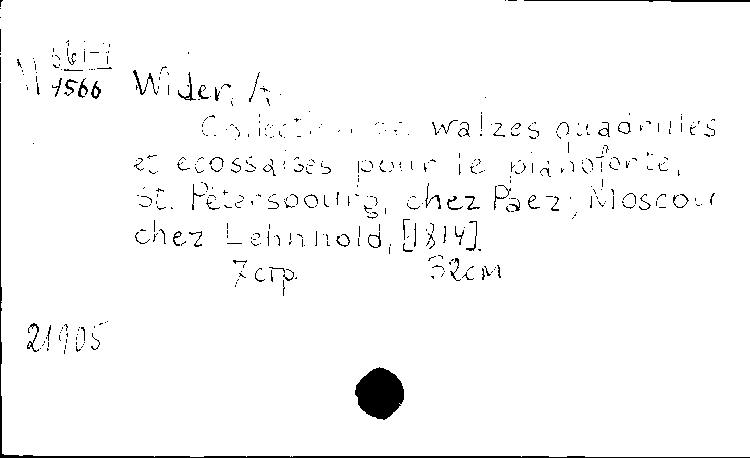 M 561-7
1566
Wider, A.
Collection de walzes quadrilles
et ecossaises pour le pianoforte,
St. Pétersbourg, chez Paez; Moscou
chez Lehnhold, [1814].
7 стр. 32 см
21905